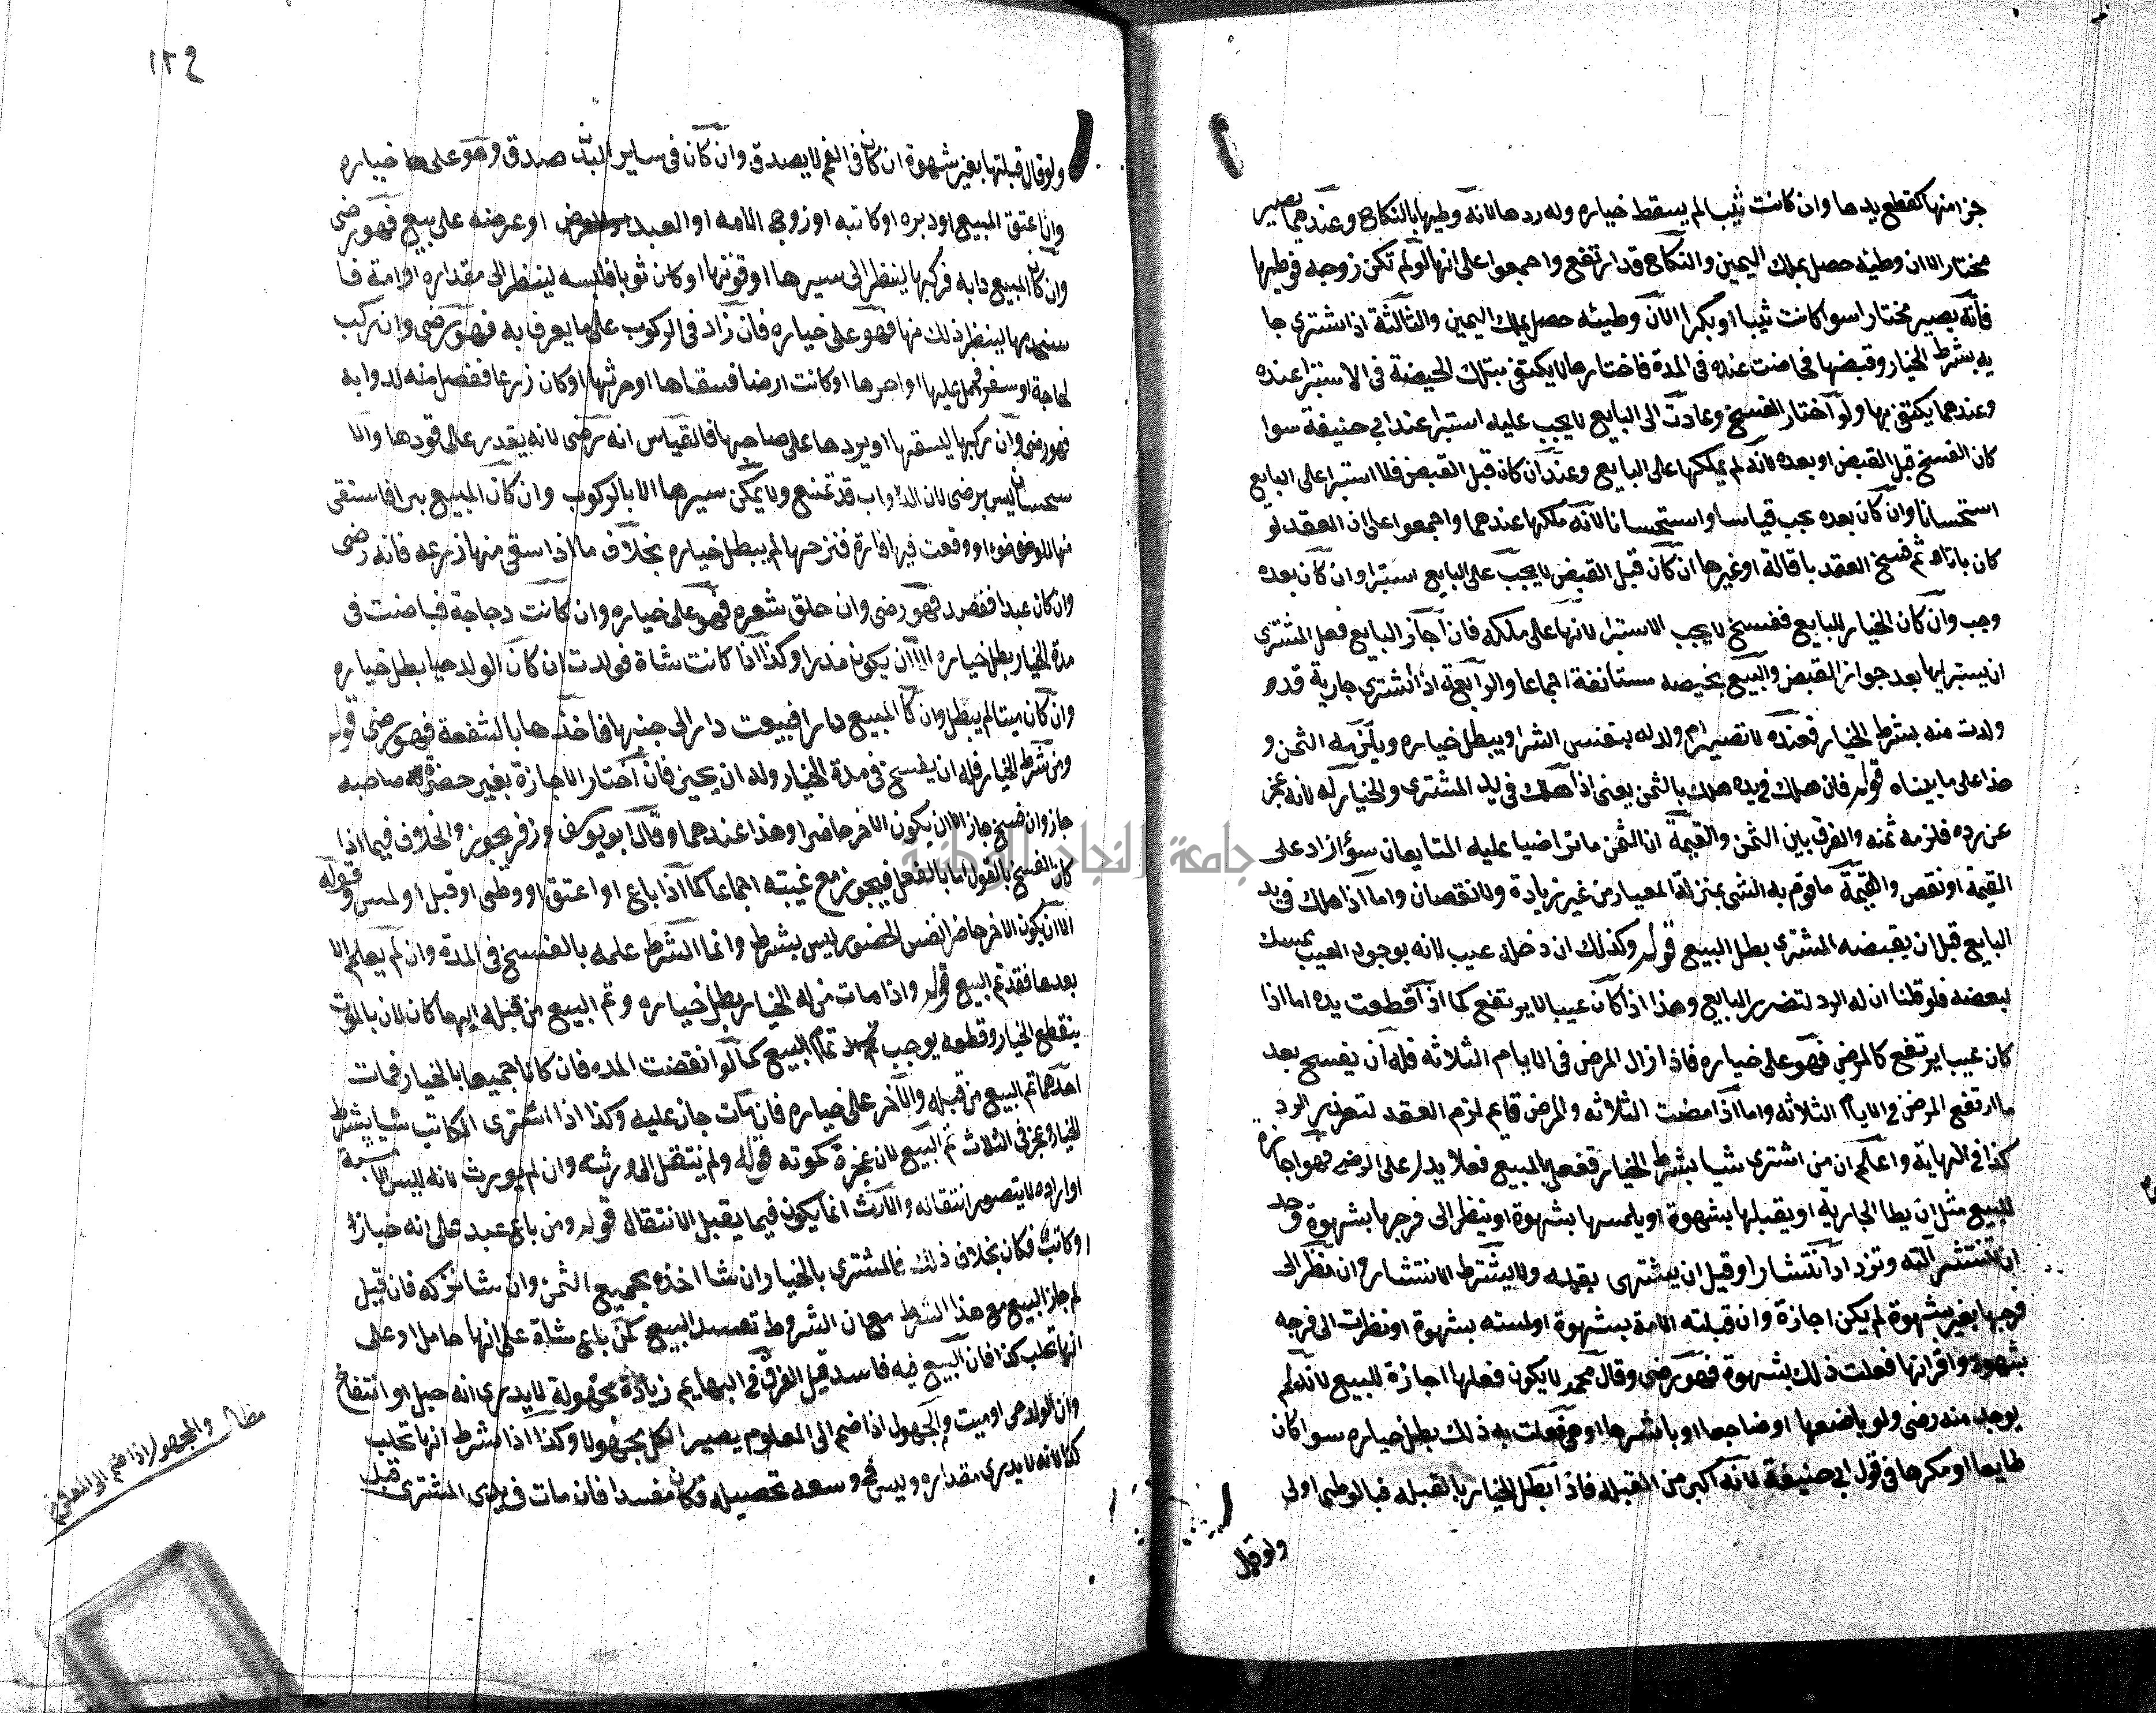 جزا منها كقطع يدها وان كانت ثيب لم يسقط خياره وله ردها لانه وطيها بالنكاح وعندهما يصير
مختار الا ان وطيه حصل بملك اليمين والنكاح قد ارتفع واجمعوا على انها لو لم تكن زوجه فوطيها
فانه يصير مختار اسوا كانت ثيبا او بكرا لان وطيه حصل بملك اليمين والثالثة اذا اشترى جا
يه بشرط الخيار وقبضها فحاضت عنده في المدة فاختارها لا يكتفى بتلك الحيضة في الاستبرا عنده
وعندهما يكتفى بها ولو اختار الفسخ وعادت الى البايع لا يجب عليه استبرا عند ابي حنيفة سوا
كان الفسخ قبل القبض او بعده لانه لم يملكها على البايع وعند ان كان قبل القبض فلا استبرا على البايع
استحسانا وان كان بعده يجب قياسا واستحسانا لانه ملكها عندهما واجمعوا على ان العقد لو
كان باتا ثم فسخ العقد باقالة او غيرها ان كان قبل القبض لا يجب على البايع استبرا وان كان بعده
وجب وان كان الخيار للبايع ففسخ لا يجب الاستبرا لانها على ملكه فان اجاز البايع فعل المشترى
ان يستبريها بعد جواز القبض والبيع بحيضه مستانفة اجماعا والرابعة اذا اشترى جارية قد و
ولدت منه بشرط الخيار فعنده لا تصير ام ولد له بنفس الشرا ويبطل خياره ويلزمه الثمن و
هذا على ما بيناه قوله فان هلك في يده هلك بالثمن يعنى اذا هلك في يد المشترى والخيار له لانه عجز
عن رده فلزمه ثمنه والفرق بين الثمن والقيمة ان الثمن ما تراضيا عليه المتبايعان سوا زاد على
القيمة او نقص والقيمة ما قوم به الشي بمنزلة المعيار من غير زيادة ولا نقصان واما اذا هلك في يد
البايع قبل ان يقبضه المشترى بطل البيع قوله وكذلك ان دخله عيب لانه بوجود العيب يمسك
لبعضه فلو قلنا ان له الرد لتضرر البايع وهذا اذا كان عيبا لا يرتفع كما اذا قطعت يده اما اذا
كان عيبا يرتفع كالمرض فهو على خياره فاذا زال المرض في الايام الثلاثه فله ان يفسخ بعد
ما ارتفع المرض في الايام الثلاثه واما اذا مضت الثلاثه والمرض قايم لزم العقد لتعذر الرد
كذا في النهاية واعلم ان من اشترى شيا بشرط الخيار ففعل بالمبيع فعلا يدل على الرضى فهو اجازة
للبيع مثل ان يطا الجارية او يقبلها بشهوة او يلمسها بشهوة او ينظر الى فرجها بشهوة وحد
ان تنتشر الته وتزداد انتشارا وقيل ان يشتهى بقلبه ولا يشترط الانتشار وان نظر الى
فرجها بغير شهوة لم يكن اجازة وان قبلته الامة بشهوة او لمسته بشهوة او نظرت الى فرجه
بشهوة واقر انها فعلت ذلك بشهوة فهو رضى وقال محمد لا يكون فعلها اجازة للبيع لانه لم
يوجد منه رضى ولو باضعها او ضاجعها او باشرها او هي فعلت به ذلك بطل خياره سوا كان
طايعا او مكرها في قول ابي حنيفة لانه اكبر من القبله فاذا بطل الخيار بالقبله فبالوطى اولى
ولو قال
١٢٤
ولو قال قبلتها بغير شهوة ان كان في الفم لا يصدق وان كان في ساير البدن صدق وهو على خياره
وان اعتق المبيع او دبره او كاتبه او زوج الامه او العبد او عرضه على بيع فهو رضى
وان كان المبيع دابه فركبها لينظر الى سيرها او قوتها او كان ثوبا فلبسه لينظر الى مقداره او امة فا
ستخدمها لينظر ذلك منها فهو على خياره فان زاد في الركوب على ما يعرف به فهو رضى وان ركب
لحاجة او سفر او حمل عليها او اجرها او كانت ارضا فسقاها او حرثها او كان زرعا ففصل منه لدوابه
فهو رضى وان ركبها ليسقيها او يردها على صاحبها فالقياس انه رضى لانه يقدر على قودها والا
ستحسان ليس برضى لان الدواب قد تمنع ولا يمكن سيرها الا بالركوب وان كان المبيع بيرا فاستقى
منها للوضوء او وقعت فيها فارة فنزحها لم يبطل خياره بخلاف ما اذا سقى منها زرعه فانه رضى
وان كان عبدا ففصد فهو رضى وان حلق شعره فهو على خياره وان كانت دجاجة فباضت في
مدة الخيار بطل خياره الا ان يكون مذرا وكذا اذا كانت شاة فولدت ان كان الولد حيا بطل خياره
وان كان ميتا لم يبطل وان كان المبيع دارا فبيعت دار الى جنبها فاخذها بالشفعة فهو رضى قوله
ومن شرط الخيار فله ان يفسخ في مدة الخيار وله ان يجيز فان اختار الاجازة بغير حضرة صاحبه
جاز وان فسخ جاز الا ان يكون الاخر حاضرا وهذا عندهما وقال ابو يوسف وزفر يجوز والخلاف فيما اذا
كان الفسخ بالقول اما بالفعل فيجوز مع غيبته اجماعا كما اذا باع او اعتق او وطى او قبل او لمس وقوله
الا ان يكون الاخر حاضرا نفس الحضور ليس بشرط وانما الشرط علمه بالفسخ في المدة وان لم يعلم الا
بعدها فقد تم البيع قوله واذا مات من له الخيار بطل خياره وتم البيع من قبله ايهما كان لان بالموت
ينقطع الخيار وقطعه يوجب تمام البيع كما لو انقضت المده فان كانا جميعا بالخيار فمات
احدهما تم البيع من قبله والاخر على خياره فان مات جاز عليه وكذا اذا اشترى المكاتب شيا بشرط
الخيار وعجز في الثلاث تم البيع لان عجزه كموته قوله ولم ينتقل الى ورثته وان لم يورث لانه ليس الا
او ارادة لا يتصور انتقاله والارث انما يكون فيما يقبل الانتقال قوله ومن باع عبد على انه خباز
او كاتب فكان بخلاف ذلك فالمشترى بالخيار ان شا اخذه بجميع الثمن وان شا تركه فان قيل
لم جاز البيع مع هذا الشرط مع ان الشروط تفسد البيع كمن باع شاة على انها حامل او على
انها تحلب كذا فان البيع فيه فاسد قيل الفرق في البهايم زيادة مجهولة لا يدرى انه حبل او انتفاخ
وان الولد حى او ميت والمجهول اذا ضم الى المعلوم يصير الكل مجهولا وكذا اذا شرط انها تحلب
كذا لانه لا يدرى مقداره وليس في وسعه تحصيله فكان مفسدا فان مات في يدى المشترى قبل
مطلب والمجهول اذا ضم الى المعلوم
جامعة النجاح الوطنية